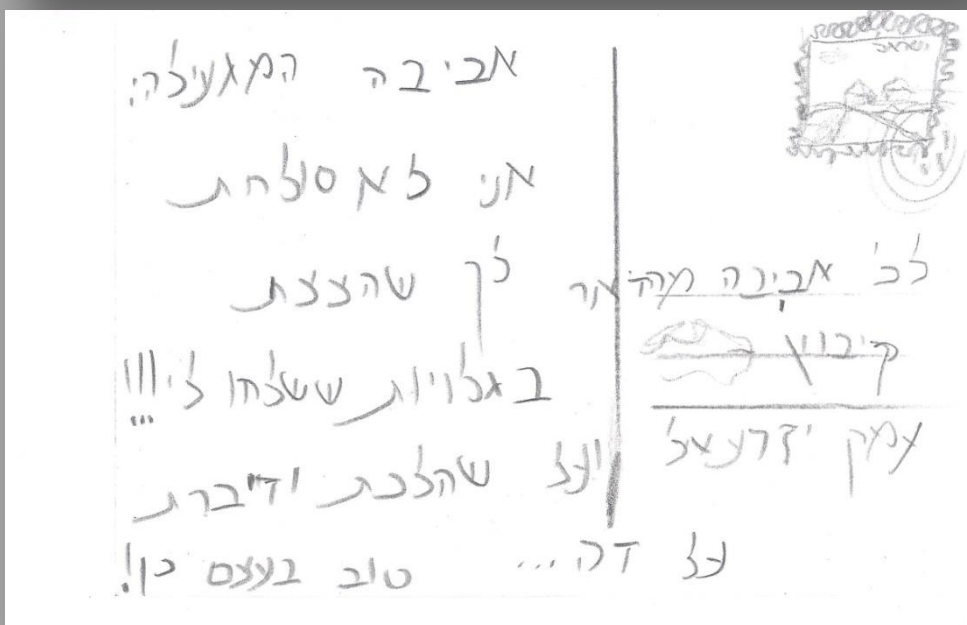 אביבה המגעילה!
אני לא סולחת
לך שהצצת
בגלויות ששלחו לי!!!
ועל שהלכת ודיברת
על זה... טוב בעצם כן!
ישראל
לכ' אביבה מהדאר
קיבוץ
עמק יזרעאל